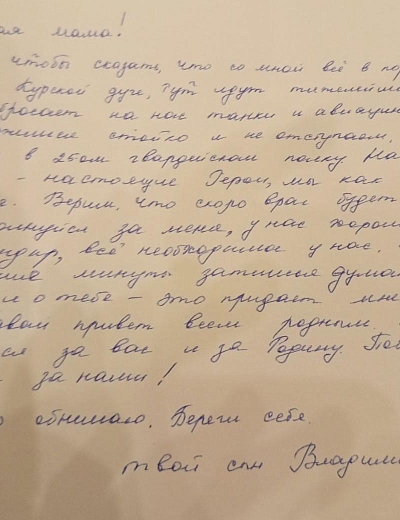 ая мама!
чтобы сказать, что со мной всё в пор
Курской дуге, Тут идут тяжелейши
бросает на нас танки и авиацию
жимся стойко и не отступаем,
в 25ом гвардейском полку На
- настоящие Герои, мы как
Верим, что скоро враг будет
олнуйся за меня, у нас хорош
ндир, всё необходимое у нас.
минуты затишья дума
и о тебе - это придаёт мне
авай привет всем родным.
ся за вас и за Родину. Поб
за нами!
о обнимаю. Береги себя.
твой сын Владими